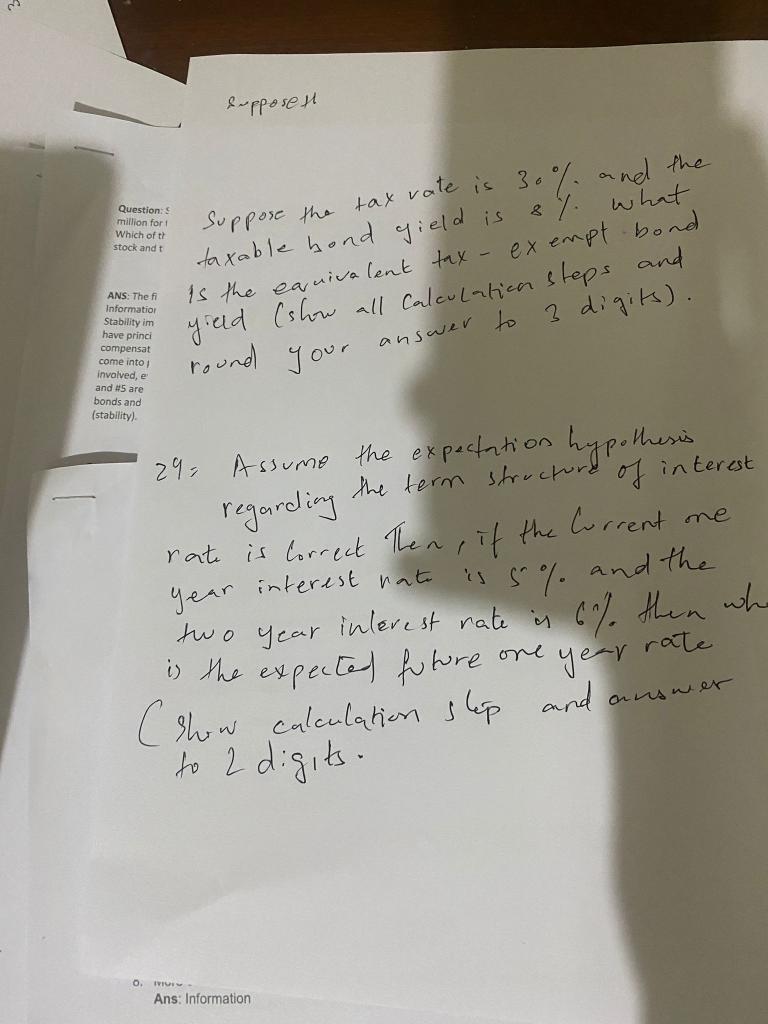 Suppose H
Suppose the tax rate is 30%. and the
taxable bond yield is 8%. what
is the equivalent tax - exempt bond
yield (show all Calculation steps and
round your answer to 3 digits).
Question: S
million for t
Which of th
stock and t
ANS: The fi
Information
Stability im
have princi
compensat
come into
involved, e
and #5 are
bonds and
(stability).
29= Assume the expectation hypothesis
regarding the term structure of interest
rate is Correct Then, if the Current one
year interest rate is 5%. and the
two year interest rate is 6%. then wh
is the expected future one year rate
(Show calculation step and answer
to 2 digits.
Ans: Information